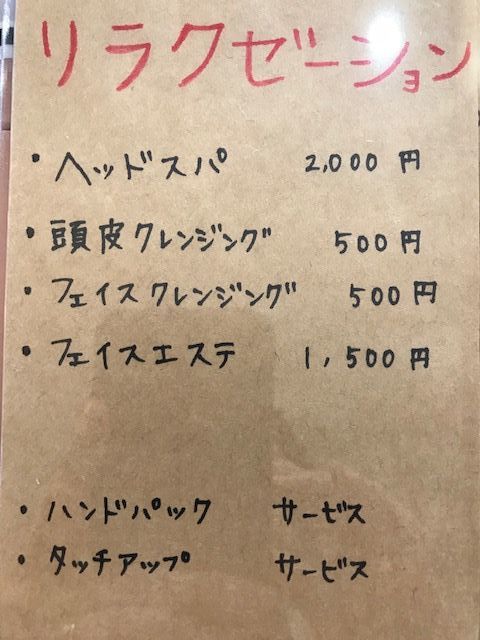 リラクゼーション
・ヘッドスパ 2,000円
・頭皮クレンジング 500円
・フェイスクレンジング 500円
・フェイスエステ 1,500円
・ハンドパック サービス
・タッチアップ サービス